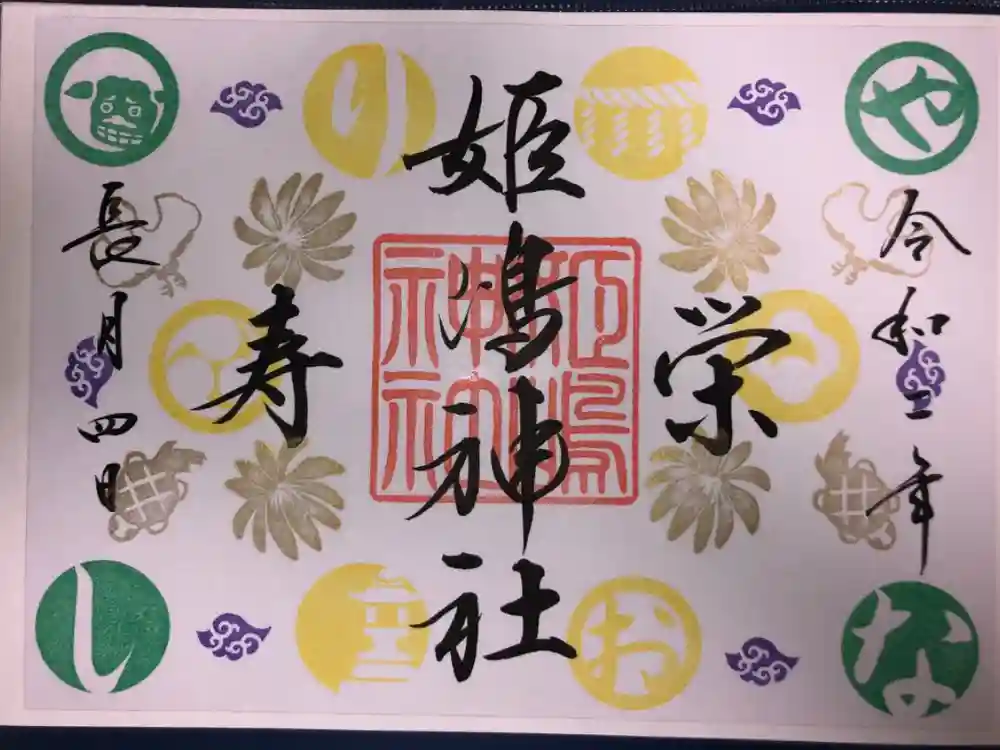 や
り
な
お
し
令和二年
栄
姫嶋神社
姫嶋
神社
寿
長月四日